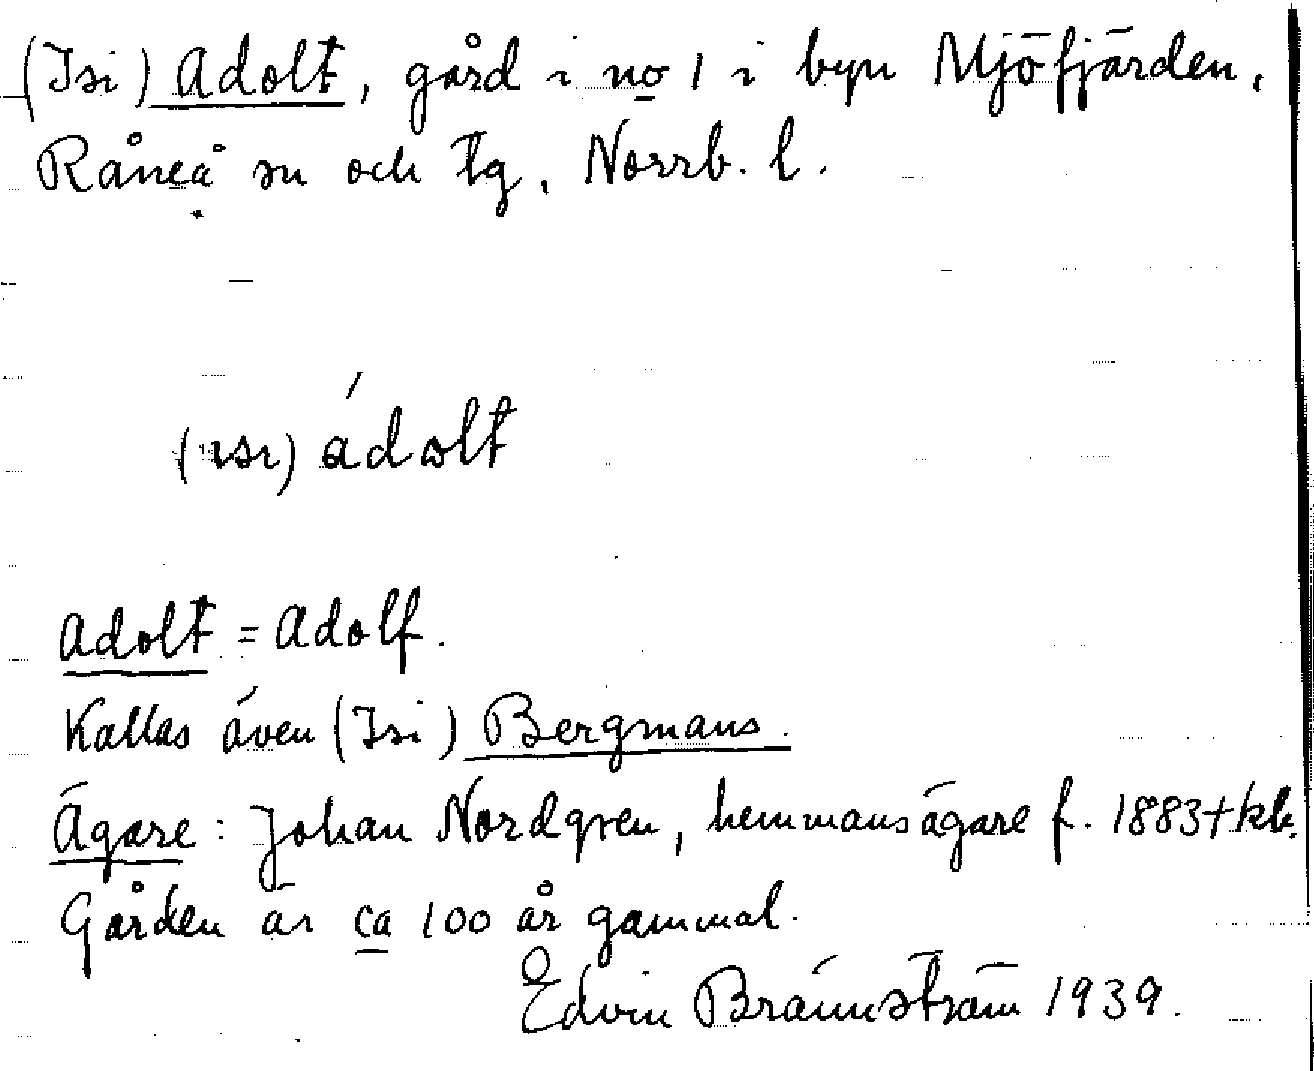 (Isi) Adolt, gård i no 1 i byn Mjöfjärden,
Råneå sn och tg, Norrb. l.
(ısı) ádɷlt
Adolt = Adolf.
Kallas även (Isi) Bergmans.
Ägare: Johan Nordgren, hemmansägare f. 1883 + kb.
Gården är ca 100 år gammal.
Edvin Brännström 1939.